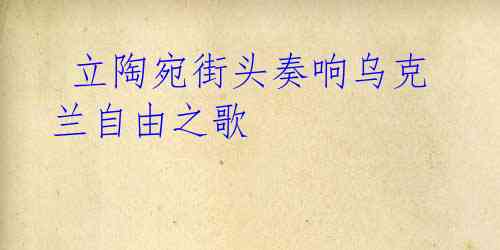 立陶宛街头奏响乌克
兰自由之歌